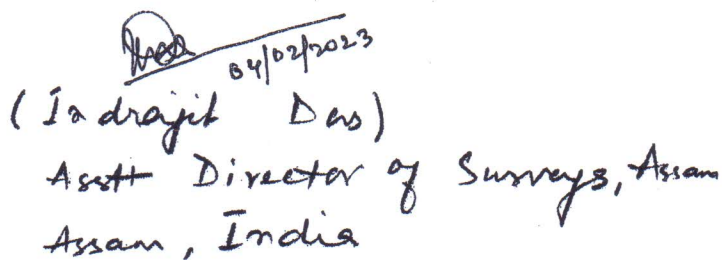 04/02/2023
(Indrajit Das)
Asstt Director of Surveys, Assam
Assam, India